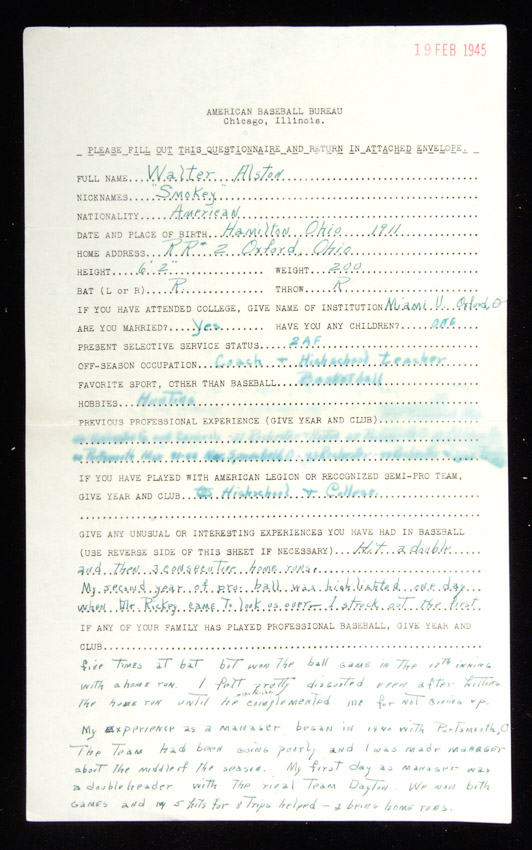 19 FEB 1945
AMERICAN BASEBALL BUREAU
Chicago, Illinois.
PLEASE FILL OUT THIS QUESTIONNAIRE AND RETURN IN ATTACHED ENVELOPE.
FULL NAME...Walter Alston
NICKNAMES..."Smokey"
NATIONALITY...American
DATE AND PLACE OF BIRTH..Hamilton Ohio 1911
HOME ADDRESS..RR# 2 Oxford, Ohio
HEIGHT....6' 2" WEIGHT...200
BAT (L or R)...R THROW...R
IF YOU HAVE ATTENDED COLLEGE, GIVE NAME OF INSTITUTION Miami U. Oxford, O
ARE YOU MARRIED?...yes HAVE YOU ANY CHILDREN?...one
PRESENT SELECTIVE SERVICE STATUS...2AF
OFF-SEASON OCCUPATION..Coach + Highschool teacher
FAVORITE SPORT, OTHER THAN BASEBALL...Basketball
HOBBIES...Hunting
PREVIOUS PROFESSIONAL EXPERIENCE (GIVE YEAR AND CLUB)
IF YOU HAVE PLAYED WITH AMERICAN LEGION OR RECOGNIZED SEMI-PRO TEAM,
GIVE YEAR AND CLUB...Highschool + College
GIVE ANY UNUSUAL OR INTERESTING EXPERIENCES YOU HAVE HAD IN BASEBALL
(USE REVERSE SIDE OF THIS SHEET IF NECESSARY)...Hit a double
and then 3 consecutive home runs.
My second year of pro. ball was highlighted one day
when Mr Rickey came to look us over - I struck out the first
IF ANY OF YOUR FAMILY HAS PLAYED PROFESSIONAL BASEBALL, GIVE YEAR AND
CLUB
five times at bat but won the ball game in the 12th inning
with a home run. I felt pretty disgusted even after hitting
the home run until he complemented me for not giving up.
My experience as a manager began in 1940 with Portsmouth, O
The team had been going poorly and I was made manager
about the middle of the season. My first day as manager was
a doubleheader with the rival team Dayton. We won both
games and my 5 hits for 8 trips helped - 2 being home runs.